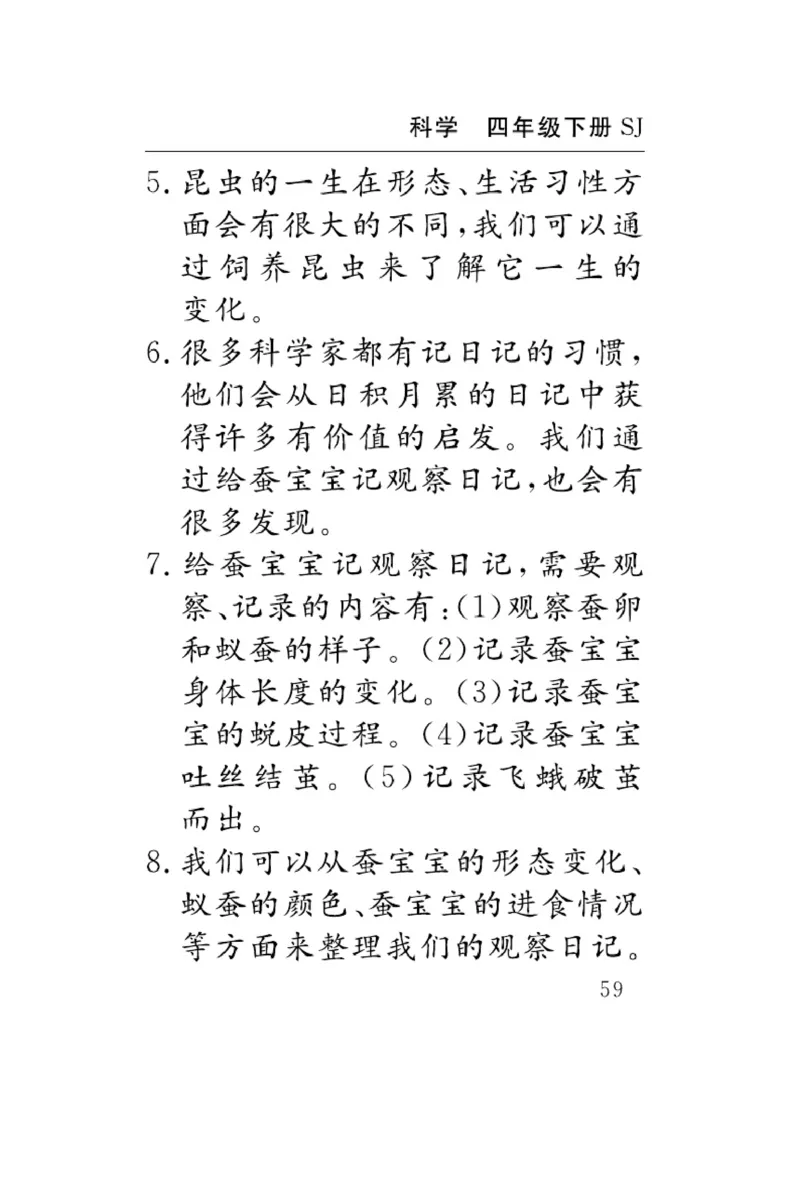 科学 四年级下册 SJ
5. 昆虫的一生在形态、生活习性方
面会有很大的不同,我们可以通
过饲养昆虫来了解它一生的
变化。
6. 很多科学家都有记日记的习惯,
他们会从日积月累的日记中获
得许多有价值的启发。我们通
过给蚕宝宝记观察日记,也会有
很多发现。
7. 给蚕宝宝记观察日记,需要观
察、记录的内容有:(1)观察蚕卵
和蚁蚕的样子。(2)记录蚕宝宝
身体长度的变化。(3)记录蚕宝
宝的蜕皮过程。(4)记录蚕宝宝
吐丝结茧。(5)记录飞蛾破茧
而出。
8. 我们可以从蚕宝宝的形态变化、
蚁蚕的颜色、蚕宝宝的进食情况
等方面来整理我们的观察日记。
59